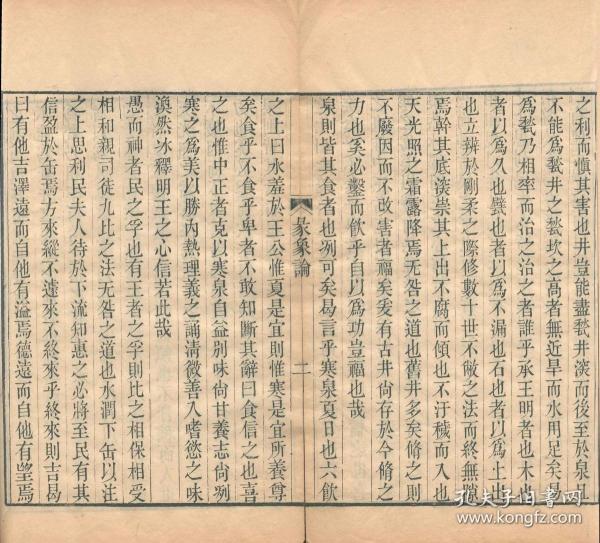 之利而慎其害也井豈能盡甃井渫而後至於泉且
不能爲甃井之甃坎之高者無近旱而水用足矣是
爲甃乃相率而治之治之者誰乎承王明者也木也
者以爲久也甓也者以爲不漏也石也者以爲上出
也立辨於剛柔之際修數十世不敝之法而終無隙
焉幹其底渫崇其上出不腐而傾也不汙穢而入也
天光照之霜露降焉无咎之道也舊井多矣脩之則
不廢因而不改害者福矣爰有古井尙存於今脩之
力也奚必鑿而飲乎自以爲功豈福也哉
泉則皆其食者也洌可矣曷言乎寒泉夏日也六飲
彖象論
二
之上曰水羞於王公惟夏是宜則惟寒是宜所養尊
矣食乎不食乎卑者不敢知斷其辭曰食信之也喜
之也惟中正者克以寒泉自益別味尙甘養志尙洌
寒之爲美以勝內熱理義之誦淸微善入嗜慾之味
渙然冰釋明王之心信若此哉
愚而神者民之孚也有王者之孚則比之相保相受
相和親司徒九比之法无咎之道也水潤下缶以注
之上思利民夫人待於下流知惠之必將至民有其
信盈於缶焉方來縱不遽來不終來乎終來則吉曷
曰有他吉澤遠而自他有溢焉德遠而自他有望焉
孔夫子旧书网
www.kongfz.com